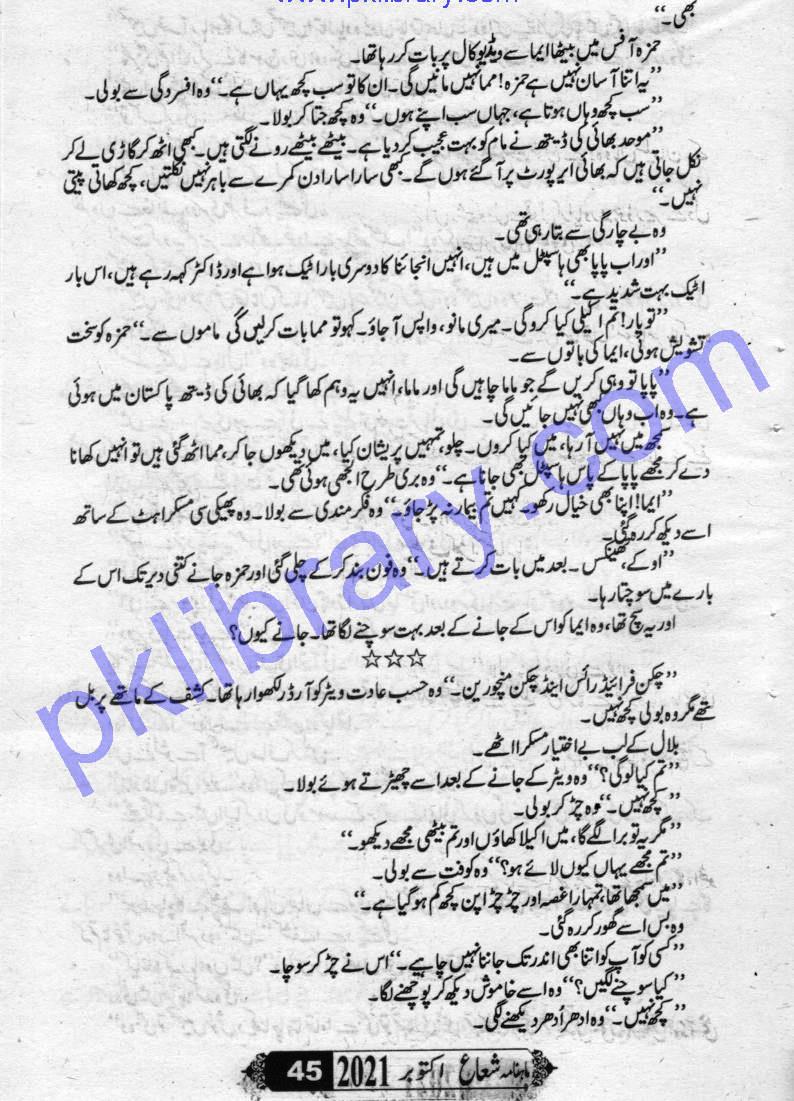 www.pklibrary.com
بھی۔‘‘
حمزہ آفس میں بیٹھا ایما سے ویڈیو کال پر بات کر رہا تھا۔
’’یہ اتنا آسان نہیں ہے حمزہ! مما نہیں مانیں گی۔ ان کا تو سب کچھ یہاں ہے۔‘‘ وہ افسردگی سے بولی۔
’’سب کچھ وہاں ہوتا ہے، جہاں سب اپنے ہوں۔‘‘ وہ کچھ جتا کر بولا۔
’’موحد بھائی کی ڈیتھ نے مام کو بہت عجیب کر دیا ہے۔ بیٹھے بیٹھے رونے لگتی ہیں۔ کبھی اٹھ کر گاڑی لے کر
نکل جاتی ہیں کہ بھائی ایرپورٹ پر آ گئے ہوں گے۔ کبھی سارا سارا دن کمرے سے باہر نہیں نکلتیں، کچھ کھاتی پیتی
نہیں۔‘‘
وہ بے چارگی سے بتا رہی تھی۔
’’اور اب پاپا بھی ہاسپٹل میں ہیں، انہیں انجائنا کا دوسری بار اٹیک ہوا ہے اور ڈاکٹر کہہ رہے ہیں، اس بار
اٹیک بہت شدید ہے۔‘‘
’’تو یار! تم اکیلی کیا کرو گی۔ میری مانو، واپس آ جاؤ۔ کہو تو مما بات کر لیں گی ماموں سے۔‘‘ حمزہ کو سخت
تشویش ہوئی، ایما کی باتوں سے۔
’’پاپا تو وہی کریں گے جو ماما چاہیں گی اور ماما، انہیں یہ وہم کھا گیا کہ بھائی کی ڈیتھ پاکستان میں ہوئی
ہے۔ وہ اب وہاں کبھی نہیں جائیں گی۔
کچھ میں نہیں آ رہا، میں کیا کروں۔ چلو، تمہیں پریشان کیا، میں دیکھوں جا کر، مما اٹھ گئی ہیں تو انہیں کھانا
دے کر مجھے پاپا کے پاس ہاسپٹل بھی جانا ہے۔‘‘ وہ بری طرح الجھی ہوئی تھی۔
’’ایما! اپنا بھی خیال رکھو۔ کہیں تم بیمار نہ پڑ جاؤ۔‘‘ وہ فکرمندی سے بولا۔ وہ پھیکی سی مسکراہٹ کے ساتھ
اسے دیکھ کر رہ گئی۔
’’اوکے، تھینکس۔ بعد میں بات کرتے ہیں۔‘‘ وہ فون بند کر کے چلی گئی اور حمزہ جانے کتنی دیر تک اس کے
بارے میں سوچتا رہا۔
اور یہ سچ تھا، وہ ایما کو اس کے جانے کے بعد بہت سوچنے لگا تھا۔ جانے کیوں؟
☆☆☆
’’چکن فرائیڈ رائس اینڈ چکن منچورین۔‘‘ وہ حسب عادت ویٹر کو آرڈر لکھوا رہا تھا۔ کشف کے ماتھے پر بل
تھے مگر وہ بولی کچھ نہیں۔
بلال کے لب بے اختیار مسکرا اٹھے۔
’’تم کیا لو گی؟‘‘ وہ ویٹر کے جانے کے بعد اسے چھیڑتے ہوئے بولا۔
’’کچھ نہیں۔‘‘ وہ چڑ کر بولی۔
’’مگر یہ تو برا لگے گا، میں اکیلا کھاؤں اور تم بیٹھی مجھے دیکھو۔‘‘
’’تم مجھے یہاں کیوں لائے ہو؟‘‘ وہ کوفت سے بولی۔
’’میں سمجھا تھا، تمہارا غصہ اور چڑچڑا پن کچھ کم ہو گیا ہے۔‘‘
وہ بس اسے گھور کر رہ گئی۔
’’کسی کو آپ کو اتنا بھی اندر تک جاننا نہیں چاہیے۔‘‘ اس نے چڑ کر سوچا۔
’’کیا سوچنے لگیں؟‘‘ وہ اسے خاموش دیکھ کر پوچھنے لگا۔
’’کچھ نہیں۔‘‘ وہ ادھر اُدھر دیکھنے لگی۔
ماہنامہ شعاع اکتوبر 2021 45
pklibrary.com